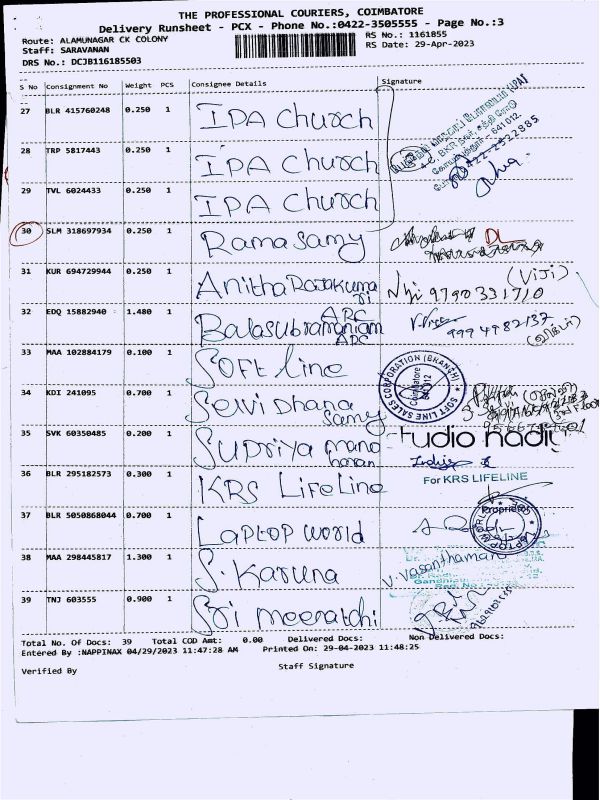 THE PROFESSIONAL COURIERS, COIMBATORE
Delivery Runsheet - PCX - Phone No.:0422-3505555 - Page No.:3
Route: ALAMUNAGAR CK COLONY
RS No.: 1161855
Staff: SARAVANAN
RS Date: 29-Apr-2023
DRS No.: DCJB116185503
S No Consignment No Weight PCS Consignee Details Signature
27 BLR 415760248 0.250 1 IPA Church
28 TRP 5817443 0.250 1 IPA Church
29 TVL 6024433 0.250 1 IPA Church
30 SLM 318697934 0.250 1 Ramasamy DL
31 KUR 694729944 0.250 1 Anitha Rajakumari (Viji) 9790331710
32 EDQ 15882940 1.480 1 Balasubramaniam ARC 9994982137
33 MAA 102884179 0.100 1 Softline SOFT LINE SALES CORPORATION (BRANCH) Coimbatore
34 KDI 241095 0.700 1 Selvi Dhanasamy
35 SVK 60350485 0.200 1 Supriya manoharan tudio hadi
36 BLR 295182573 0.300 1 KRS LifeLine For KRS LIFELINE
37 BLR 5050868044 0.700 1 Laptop world Proprietor
38 MAA 298445817 1.300 1 S. Karuna V. Vasanthamani
39 TNJ 603555 0.900 1 Sri meenatchi
Total No. Of Docs: 39 Total COD Amt: 0.00 Delivered Docs: Non Delivered Docs:
Entered By :NAPPINAX 04/29/2023 11:47:28 AM Printed On: 29-04-2023 11:48:25
Verified By Staff Signature